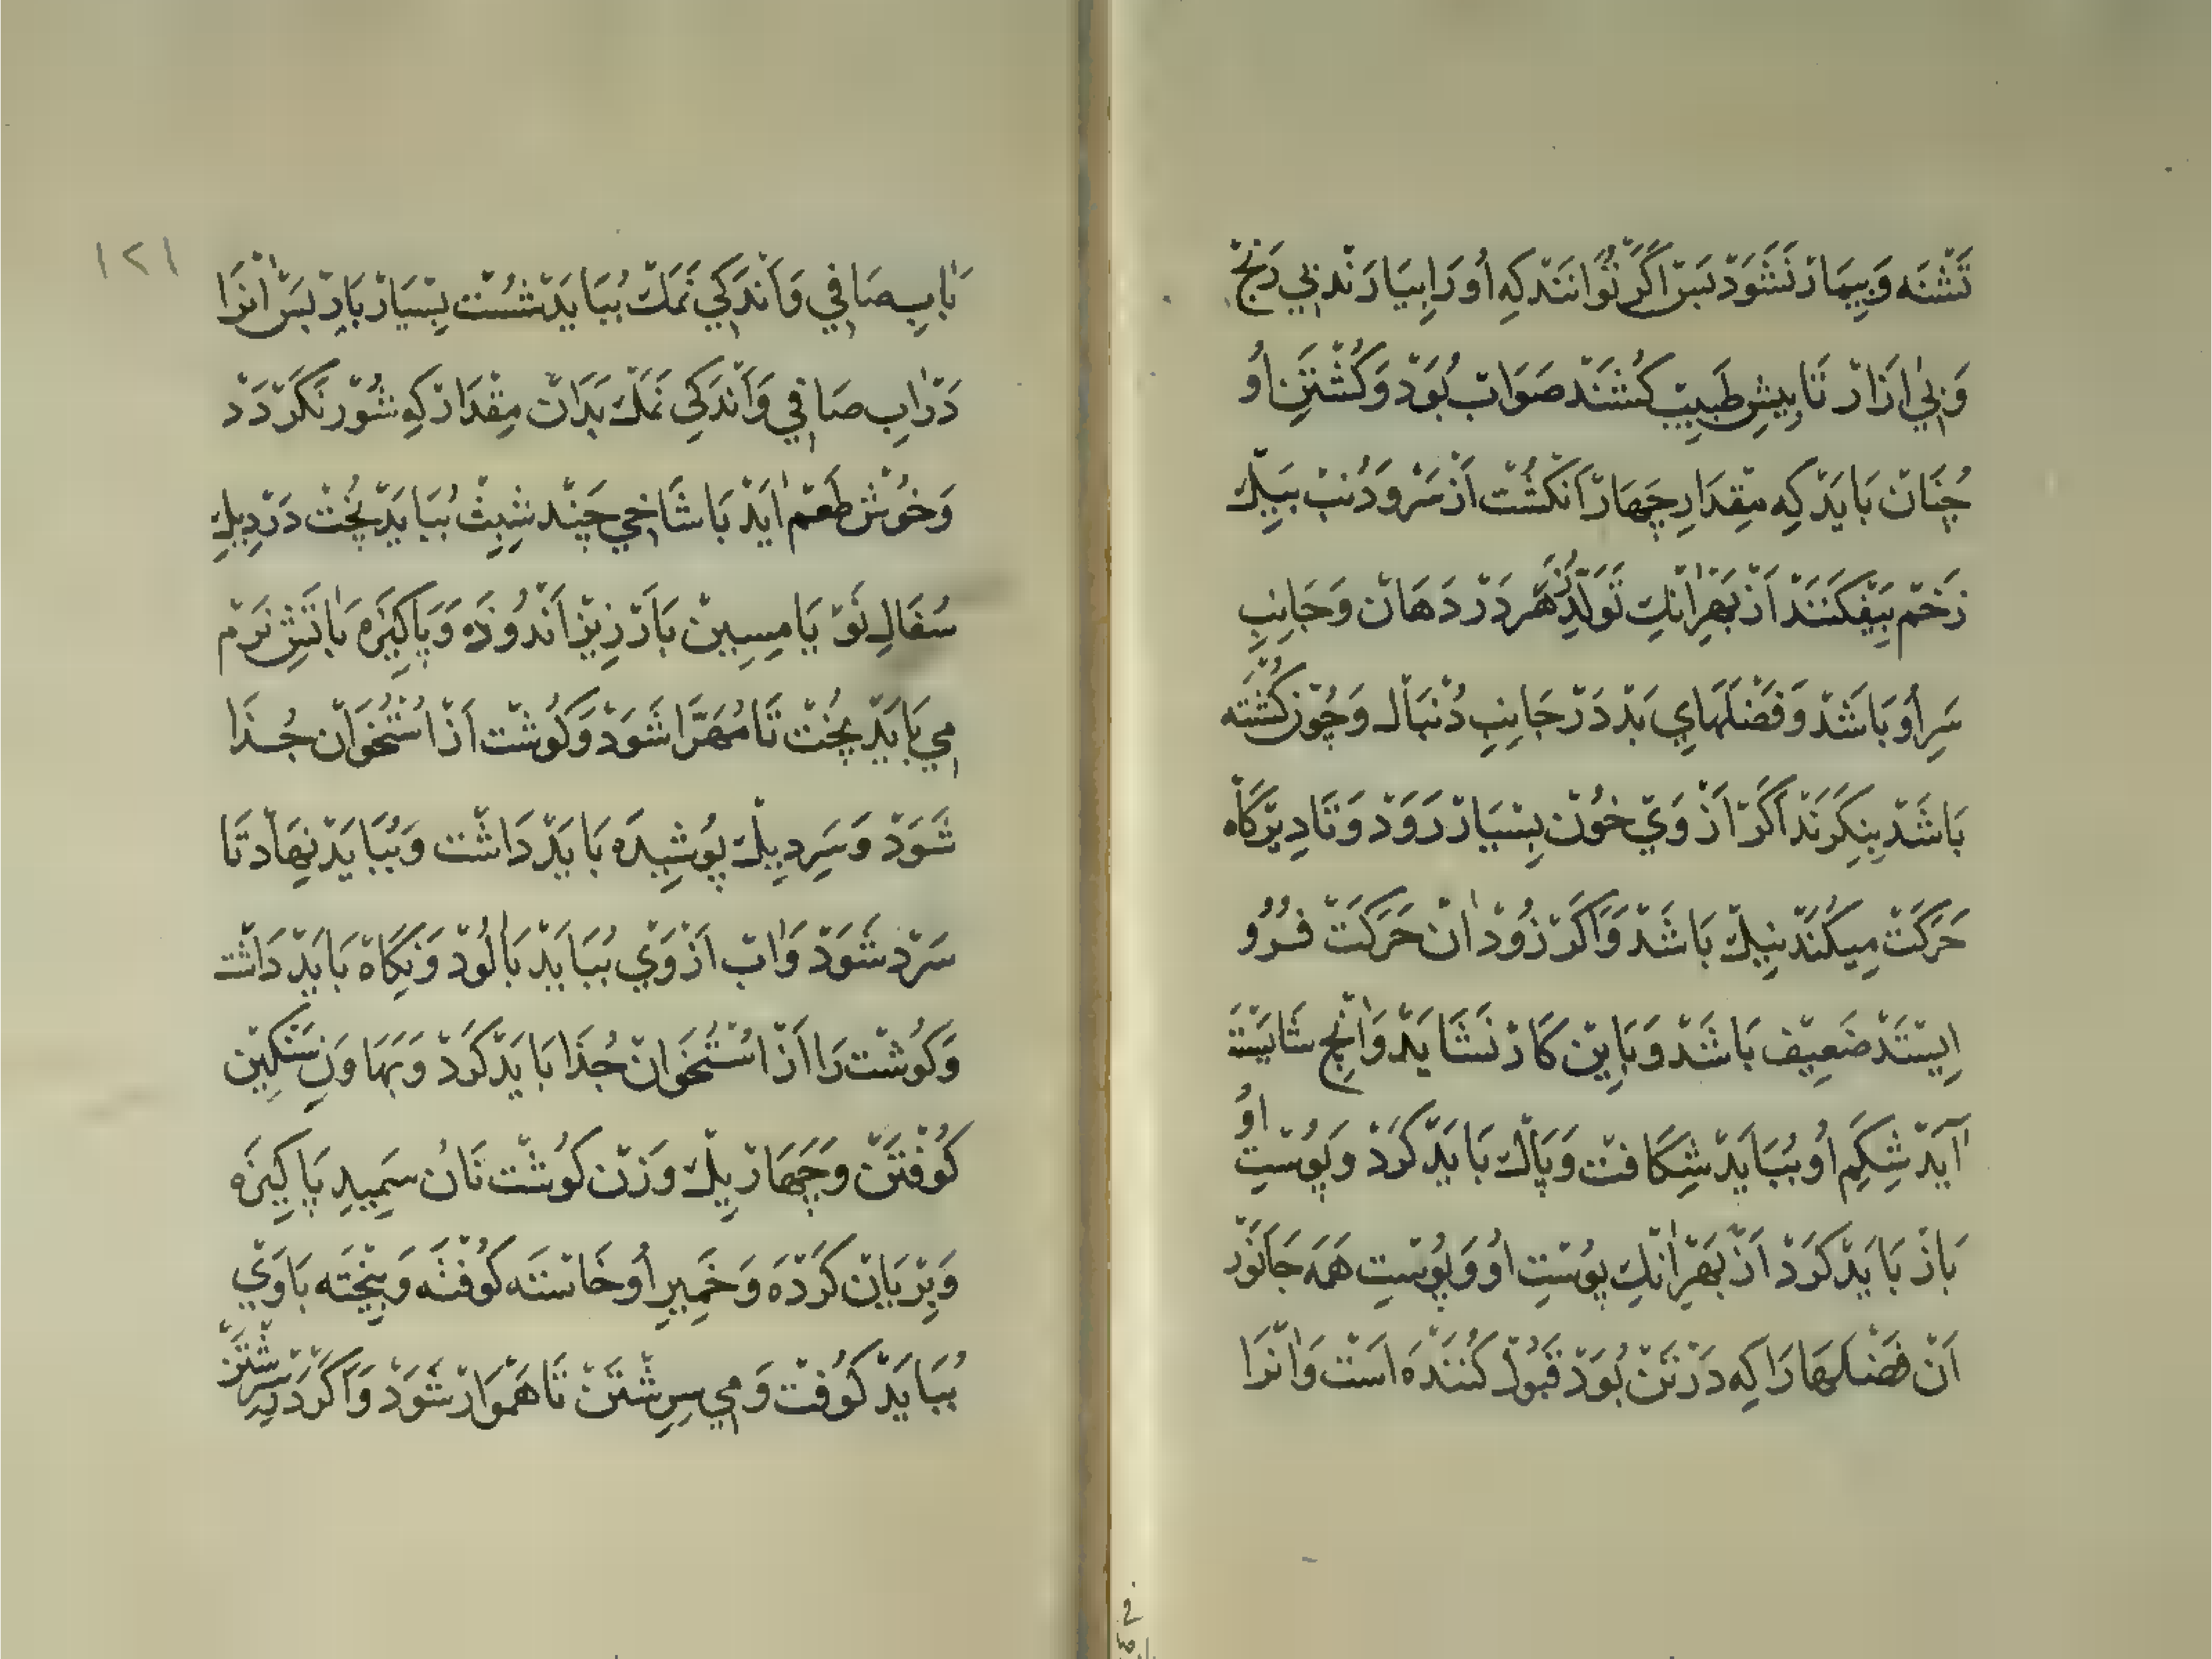 تَشْنَه وَبِیمَارْ نَشَوَدْ بَسْ اَكَرْ تُوَانَنَدْ كِه اُورَا بِیَارَنْدْ بِي رَنْجْ
وَبِي اٰزَارْ تَا بِیشِ طَبِیبْ كُشَنْد صَوَابْ بُوَدْ وَكُشْتَنِ اُو
چُنَانْ بَایَدْ كِه مِقْدَارِ چَهَارْ اَنْكُشْت اَزْ سَرْ وَدُنبْ بِیِكْ
زَخْم بِیَفْكَنَنْد اَزْ بَهْرِ اٰنِكْ تَوَلُّدِ زَهْر دَرْ دَهَانْ وَجَانِبِ
سَرِ اُو بَاشَدْ وَفَضْلَهَايِ بَدْ دَرْ جَانِبِ دُنْبَالْ وَچُونْ كُشْتَه
بَاشَدْ بِنِكَرَنْد اَكَرْ اَزْ وَيْ خُونْ بِسْیَارْ رَوَدْ وَتَا دِیرْكَاهْ
حَرَكَتْ مِیكُنَدْ نِیكْ بَاشَدْ وَاَكَرْ زُودْ اٰنْ حَرَكَتْ فُرُو
اِیسْتَدْ ضَعِیف بَاشَدْ وَبَاِینْ كَارْ نَشَایَدْ وَاٰنْچِ شَایَسْتَه
اٰیَدْ شِكَمِ اُو بُبَایَدْ شِكَافتْ وَپَاكْ بَایَدْ كَرْدْ وَپُوسْتِ اُو
بَازْ بَایَدْ كَرْدْ اَزْ بَهْرِ اٰنِكْ پُوسْتِ اُو وَپُوسْتِ هَمَه جَانَوَر
اَنْ فَضْلَهَا رَا كِه دَرْ تَنْ بُوَدْ قَبُولْ كُنَنْدَه اَسْتْ وَاٰنْرَا
بَاٰبِ صَافِي وَاَنْدَكِي نَمَكْ بُبَایَدْ شُسْتْ بِسْیَارْ بَارْ بَسْ اٰنْرَا
دَرْ اٰبِ صَافِي وَاَنْدَكِي نَمَكْ بَدَانْ مِقْدَارْ كِه شُورْ نَكَرْدَدْ
وَخُوشْ طَعْم اٰیَدْ بَا شَاخِي چَنْد شِبِثْ بُبَایَدْ پُخْتْ دَرْ دِیكِ
سُفَالِ نَوْ یَا مِسِینْ بَارْزِیزْ اَنْدُوذَه وَپَاكِیزَه بَاٰتَشِ نَرْم
مِي بَایَدْ پُخْتْ تَا مُهَرَّا شَوَدْ وَكُوشْت اَزْ اُسْتُخْوَانْ جُذَا
شَوَدْ وَسَرِ دِیكْ پُوشِیدَه بَایَدْ دَاشْت وَبُبَایَدْ نِهَادْ تَا
سَرْد شَوَدْ وَاٰبْ اَزْ وَيْ بُبَایَدْ بَالُودْ وَنِكَاهْ بَایَدْ دَاشْت
وَكُوشْت رَا اَزْ اُسْتُخْوَانْ جُذَا بَایَدْ كَرْدْ وَبَهَاوَنِ سَنْكِینْ
كُوفْتَنْ وَچَهَارْ یِكْ وَزْنِ كُوشْت نَانِ سَمِیدِ پَاكِیزَه
وَبِرْیَانْ كَرْدَه وَخَمِیرِ اُو خَاسْتَه كُوفْتَه وَبِیخْتَه بَا وَيْ
بُبَایَدْ كُوفْتْ وَمِي سِرِشْتَنْ تَا هَمْوَارْ شَوَدْ وَاَكَرْ دَرْ سِرِشْتَنْ
۱۲۱